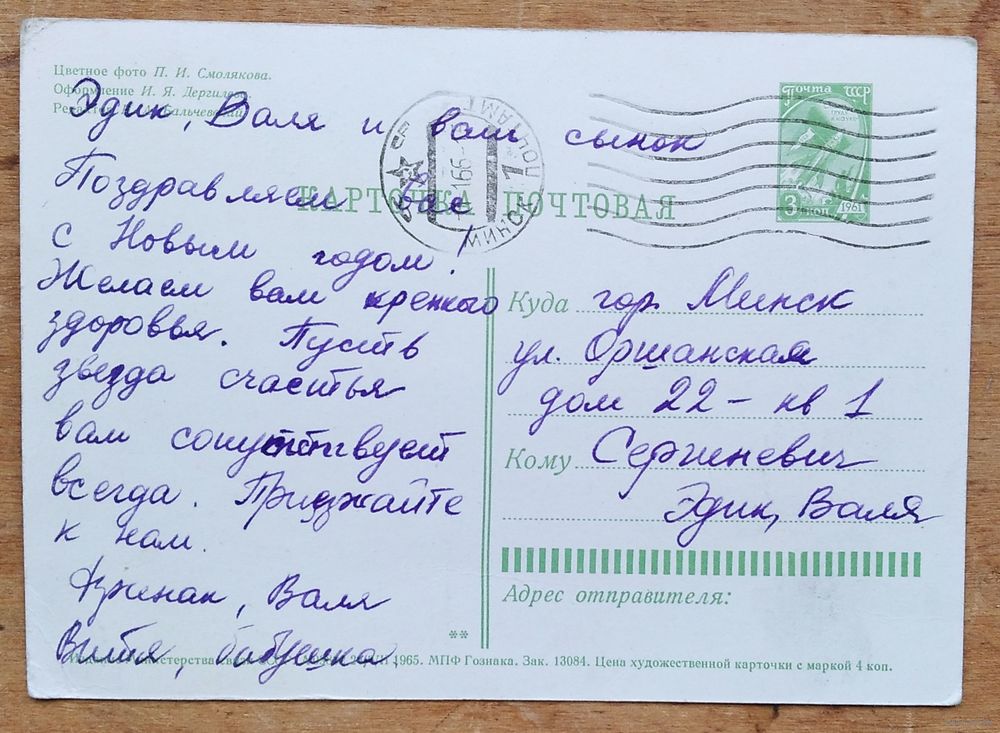 Цветное фото П. И. Смолякова.
Оформление И. Я.
Эдик, Валя и ваш сынок
Поздравляем Вас
с Новым годом!
Желаем вам крепкого
здоровья. Пусть
звезда счастья
вам сопутствует
всегда. Приезжайте
к нам.
Валя
Витя, бабушка
КАРТОЧКА ПОЧТОВАЯ
ПОЧТА СССР
3 коп 1961
Куда гор. Минск
ул. Оршанская
дом 22 - кв 1
Кому Сергиевич
Эдик, Валя
Адрес отправителя:
**
1965. МПФ Гознака. Зак. 13084. Цена художественной карточки с маркой 4 коп.